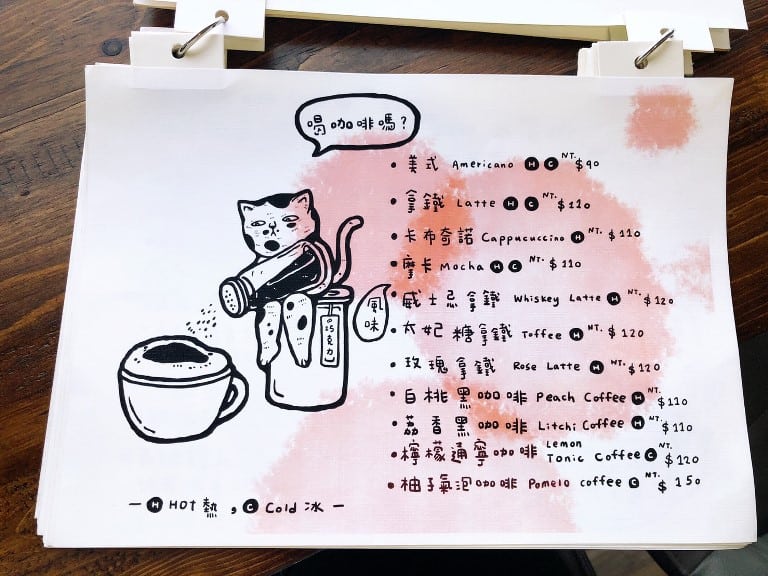 喝咖啡嗎?
• 美式 Americano H C NT. $90
• 拿鐵 Latte H C NT. $110
• 卡布奇諾 Cappucuccino H NT. $110
• 摩卡 Mocha H C NT. $110
• 威士忌拿鐵 Whiskey Latte H NT. $120
• 太妃糖拿鐵 Toffee H NT. $120
• 玫瑰拿鐵 Rose Latte H NT. $120
• 白桃黑咖啡 Peach Coffee H NT. $110
• 荔香黑咖啡 Litchi Coffee H NT. $110
• 檸檬通寧咖啡 Lemon Tonic Coffee C NT. $120
• 柚子氣泡咖啡 Pomelo coffee C NT. $150
風味
巧克力
— H HOT 熱 , C Cold 冰 —